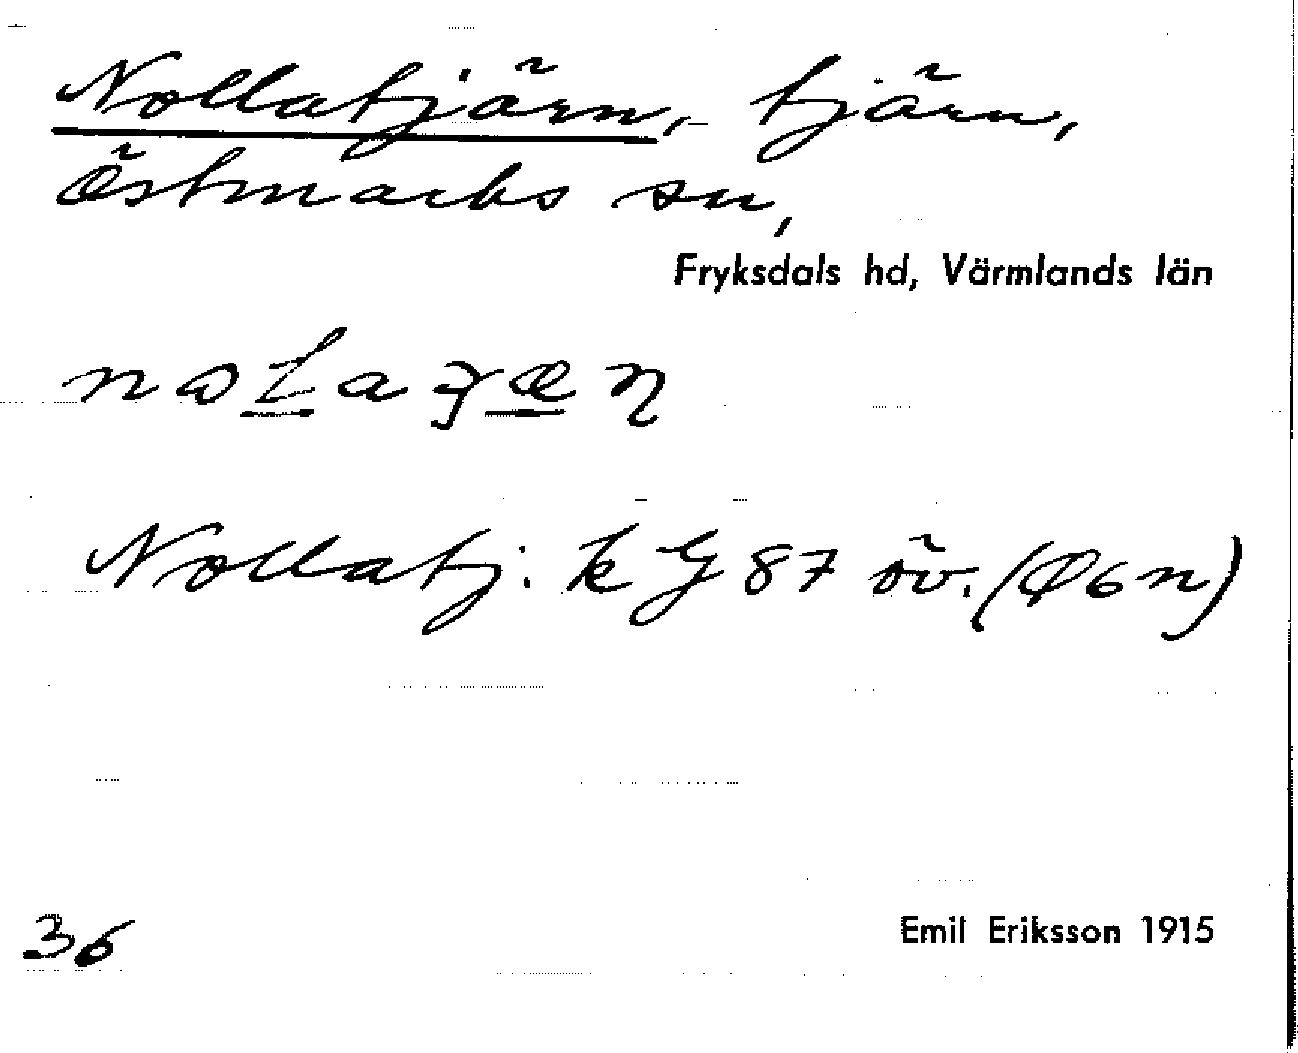 Nollatjärn, tjärn,
Östmarks sn,
Fryksdals hd, Värmlands län
Nollatj. k G 87 öv. (Ø6n)
36
Emil Eriksson 1915